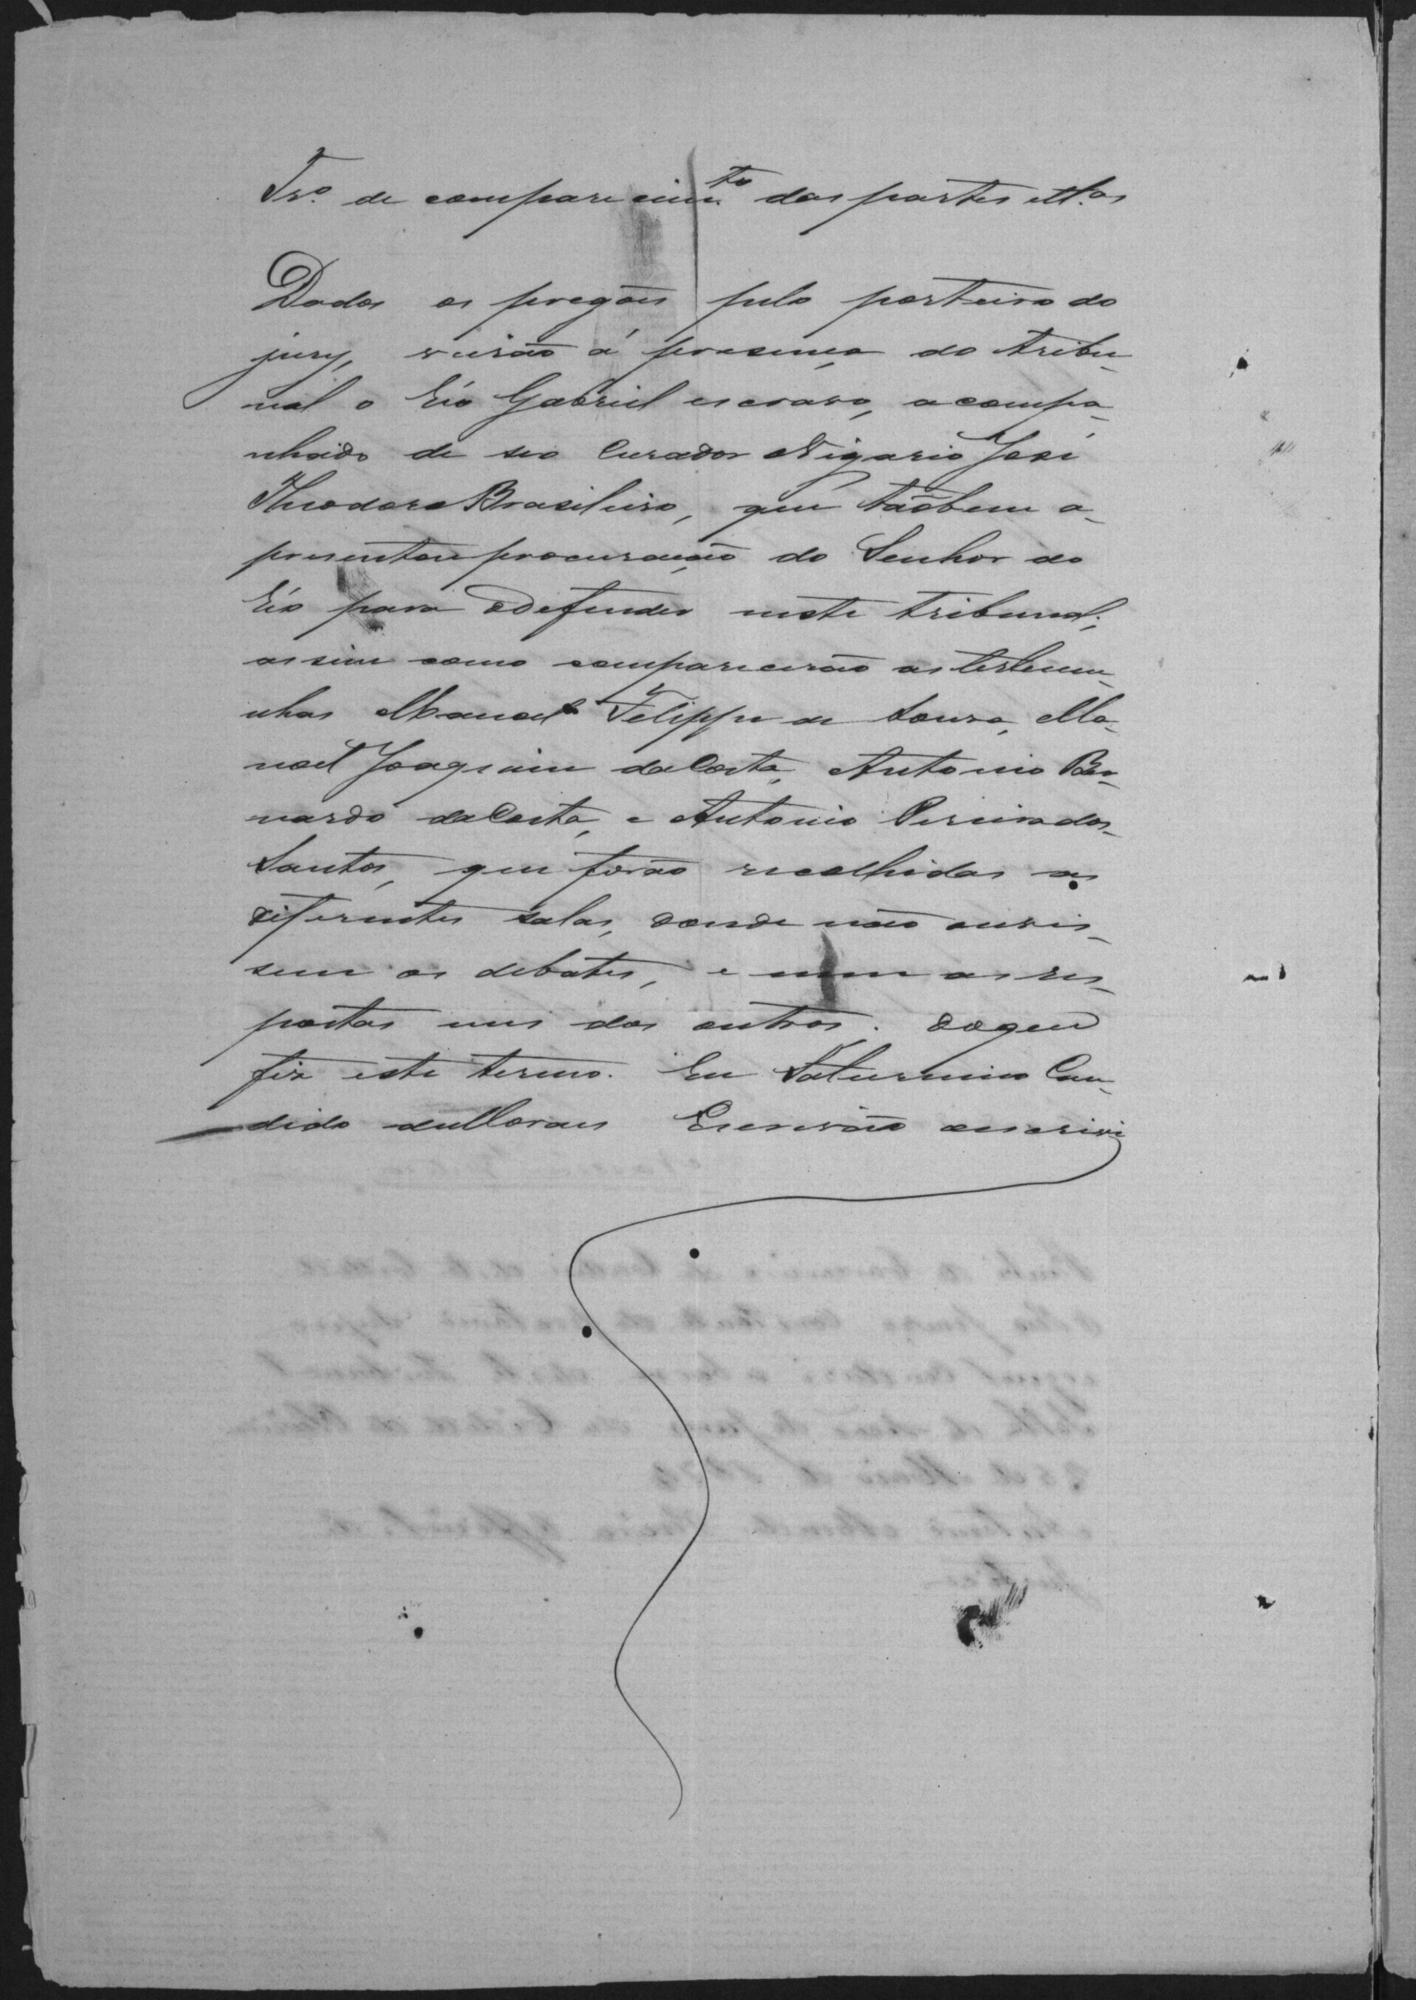 Tr.º de comparecim.to das partes e tt.as
Dados os pregões pelo porteiro do
jury, vierão á presença do tribu-
nal o réo Gabriel escravo, acompa-
nhado de seo Curador o Vigario José
Theodoro Brasileiro, que tãobem a-
presentou procuração do Senhor do
réo para o defender neste tribunal;
assim como comparecerão as testemu-
nhas Manoel Felippe de Souza, Ma-
noel Joaquim da Costa, Antonio Ber-
nardo da Costa, e Antonio Pereira dos
Santos, que forão recolhidas as
diferentes salas, donde não ouvis-
sem os debates, e nem as res-
postas uns dos outros. Do que
fiz este termo. Eu Saturnino Can-
dido de Moraes Escrivão o escrivi